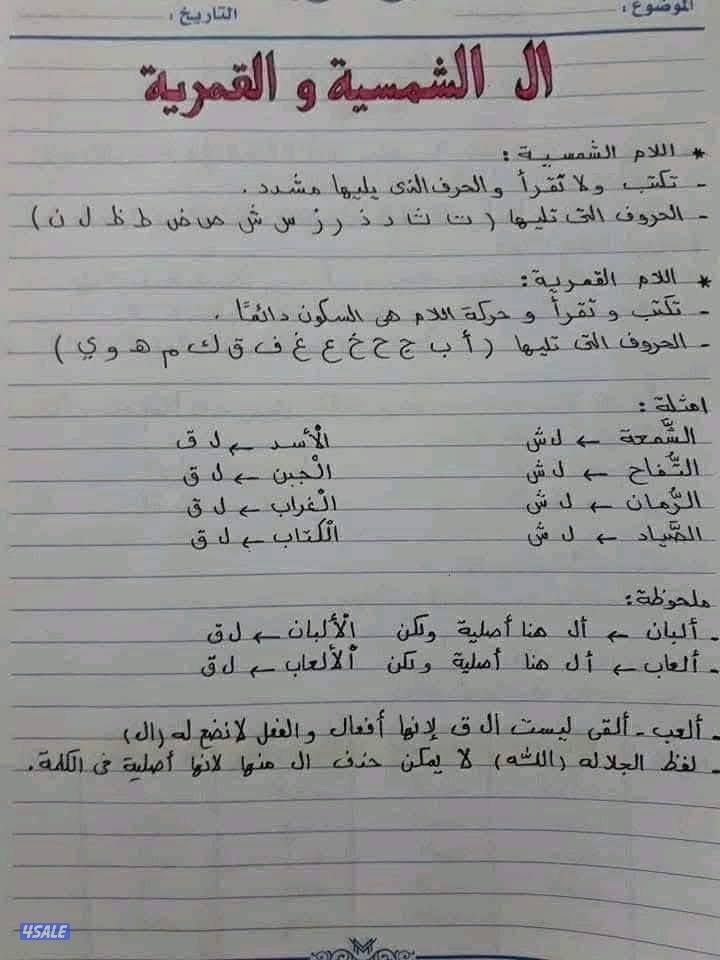 الموضوع : التاريخ :
ال الشمسية و القمرية
* اللام الشمسية :
- تكتب ولا تقرأ والحرف الذى يليها مشدد .
- الحروف التى تليها ( ت ث د ذ ر ز س ش ص ض ط ظ ل ن )
* اللام القمرية :
- تكتب و تقرأ و حركة اللام هى السكون دائمًا .
- الحروف التى تليها ( أ ب ج ح خ ع غ ف ق ك م هـ و ي )
امثلة :
الشَّمعة ← ل ش الْأسد ← ل ق
التُّفاح ← ل ش الْجبن ← ل ق
الرُّمان ← ل ش الْغراب ← ل ق
الصَّياد ← ل ش الْكتاب ← ل ق
ملحوظة :
- ألبان ← أل هنا أصلية ولكن الْألبان ← ل ق
- ألعاب ← أل هنا أصلية ولكن الْألعاب ← ل ق
- ألعب - ألقى ليست ال ق لإنها أفعال والفعل لا نضع له (ال)
- لفظ الجلاله (الله) لا يمكن حذف ال منها لانها أصلية فى الكلمة .
4SALE